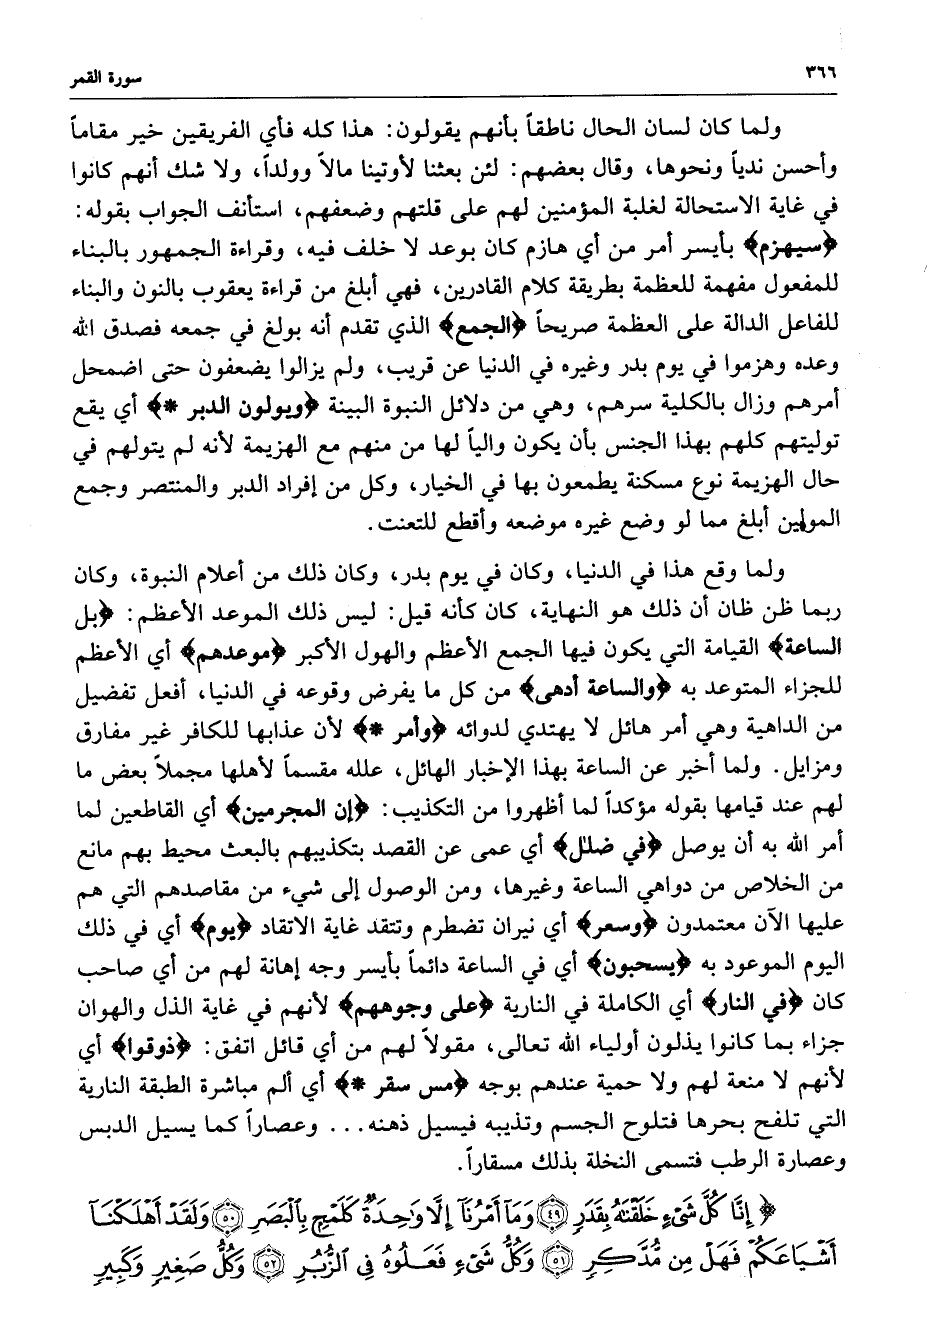 ٣٦٦
سورة القمر
ولما كان لسان الحال ناطقاً بأنهم يقولون: هذا كله فأي الفريقين خير مقاماً
وأحسن ندياً ونحوها، وقال بعضهم: لئن بعثنا لأوتينا مالاً وولداً، ولا شك أنهم كانوا
في غاية الاستحالة لغلبة المؤمنين لهم على قلتهم وضعفهم، استأنف الجواب بقوله:
﴿سيهزم﴾ بأيسر أمر من أي هازم كان بوعد لا خلف فيه، وقراءة الجمهور بالبناء
للمفعول مفهمة للعظمة بطريقة كلام القادرين، فهي أبلغ من قراءة يعقوب بالنون والبناء
للفاعل الدالة على العظمة صريحاً ﴿الجمع﴾ الذي تقدم أنه بولغ في جمعه فصدق الله
وعده وهزموا في يوم بدر وغيره في الدنيا عن قريب، ولم يزالوا يضعفون حتى اضمحل
أمرهم وزال بالكلية سرهم، وهي من دلائل النبوة البينة ﴿ويولون الدبر *﴾ أي يقع
توليتهم كلهم بهذا الجنس بأن يكون والياً لها من منهم مع الهزيمة لأنه لم يتولهم في
حال الهزيمة نوع مسكنة يطمعون بها في الخيار، وكل من إفراد الدبر والمنتصر وجمع
المولين أبلغ مما لو وضع غيره موضعه وأقطع للتعنت.
ولما وقع هذا في الدنيا، وكان في يوم بدر، وكان ذلك من أعلام النبوة، وكان
ربما ظن ظان أن ذلك هو النهاية، كان كأنه قيل: ليس ذلك الموعد الأعظم: ﴿بل
الساعة﴾ القيامة التي يكون فيها الجمع الأعظم والهول الأكبر ﴿موعدهم﴾ أي الأعظم
للجزاء المتوعد به ﴿والساعة أدهى﴾ من كل ما يفرض وقوعه في الدنيا، أفعل تفضيل
من الداهية وهي أمر هائل لا يهتدي لدوائه ﴿وأمر *﴾ لأن عذابها للكافر غير مفارق
ومزايل. ولما أخبر عن الساعة بهذا الإخبار الهائل، علله مقسماً لأهلها مجملاً بعض ما
لهم عند قيامها بقوله مؤكداً لما أظهروا من التكذيب: ﴿إن المجرمين﴾ أي القاطعين لما
أمر الله به أن يوصل ﴿في ضلل﴾ أي عمى عن القصد بتكذيبهم بالبعث محيط بهم مانع
من الخلاص من دواهي الساعة وغيرها، ومن الوصول إلى شيء من مقاصدهم التي هم
عليها الآن معتمدون ﴿وسعر﴾ أي نيران تضطرم وتتقد غاية الاتقاد ﴿يوم﴾ أي في ذلك
اليوم الموعود به ﴿يسحبون﴾ أي في الساعة دائماً بأيسر وجه إهانة لهم من أي صاحب
كان ﴿في النار﴾ أي الكاملة في النارية ﴿على وجوههم﴾ لأنهم في غاية الذل والهوان
جزاء بما كانوا يذلون أولياء الله تعالى، مقولاً لهم من أي قائل اتفق: ﴿ذوقوا﴾ أي
لأنهم لا منعة لهم ولا حمية عندهم بوجه ﴿مس سقر *﴾ أي ألم مباشرة الطبقة النارية
التي تلفح بحرها فتلوح الجسم وتذيبه فيسيل ذهنه... وعصاراً كما يسيل الدبس
وعصارة الرطب فتسمى النخلة بذلك مسقاراً.
﴿إِنَّا كُلَّ شَىْءٍ خَلَقْنَٰهُ بِقَدَرٍ ﴿٤٩﴾ وَمَآ أَمْرُنَآ إِلَّا وَٰحِدَةٌ كَلَمْحٍ بِٱلْبَصَرِ ﴿٥٠﴾ وَلَقَدْ أَهْلَكْنَآ
أَشْيَاعَكُمْ فَهَلْ مِن مُّدَّكِرٍ ﴿٥١﴾ وَكُلُّ شَىْءٍ فَعَلُوهُ فِى ٱلزُّبُرِ ﴿٥٢﴾ وَكُلُّ صَغِيرٍ وَكَبِيرٍ